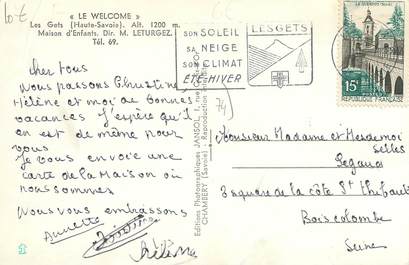 « LE WELCOME »
Les Gets (Haute-Savoie). Alt. 1200 m.
Maison d'Enfants. Dir. M. LETURGEZ.
Tél. 69.
SON SOLEIL
SA NEIGE
SON CLIMAT
ÉTÉ-HIVER
LES GETS
15F
REPUBLIQUE FRANÇAISE
74
Cher tous
Nous passons Christine
Hélène et moi de bonnes
vacances J'espère qu'il
en est de même pour
vous
Je vous envoie une
carte de la maison où
nous sommes
Nous vous embrassons
Annette
Hélène
Editions Photographiques JANSOL, 1, rue
CHAMBERY (Savoie) - Reproduction interdite
Monsieur Madame et Mesdemoi
selles
Segaud
3 square de la côte St Thibault
Bois colombe
Seine